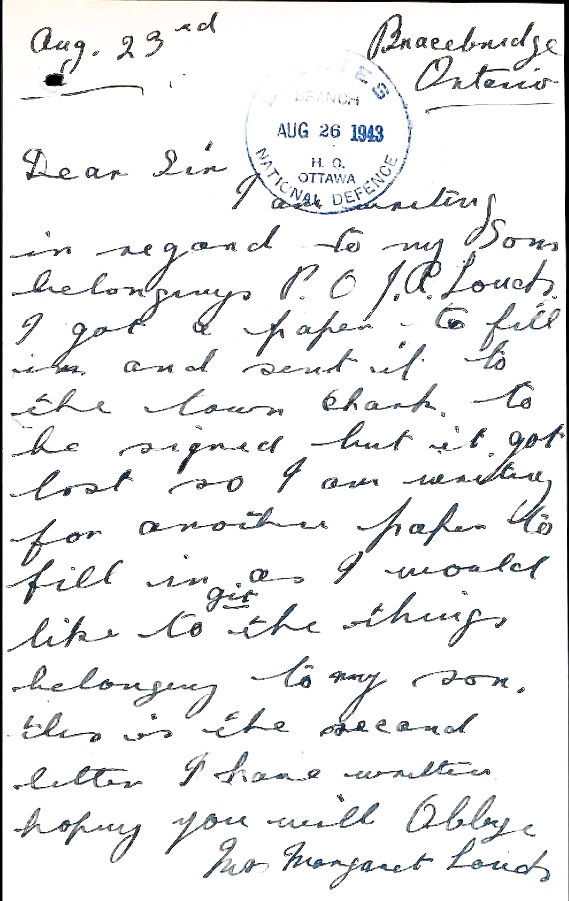 Aug. 23rd
Bracebridge
Ontario
ESTATES
BRANCH
AUG 26 1943
H. Q.
OTTAWA
NATIONAL DEFENCE
Dear Sir
I am writing
in regard to my Sons
belongings P. O J.R. Louch.
I got a paper to fill
in and send it to
the town to
be signed but it got
lost so I am writing
for another paper to
fill in as I would
like to get the things
belonging to my son.
this is the second
letter I have written
hoping you will Oblige
Mrs Margaret Louch